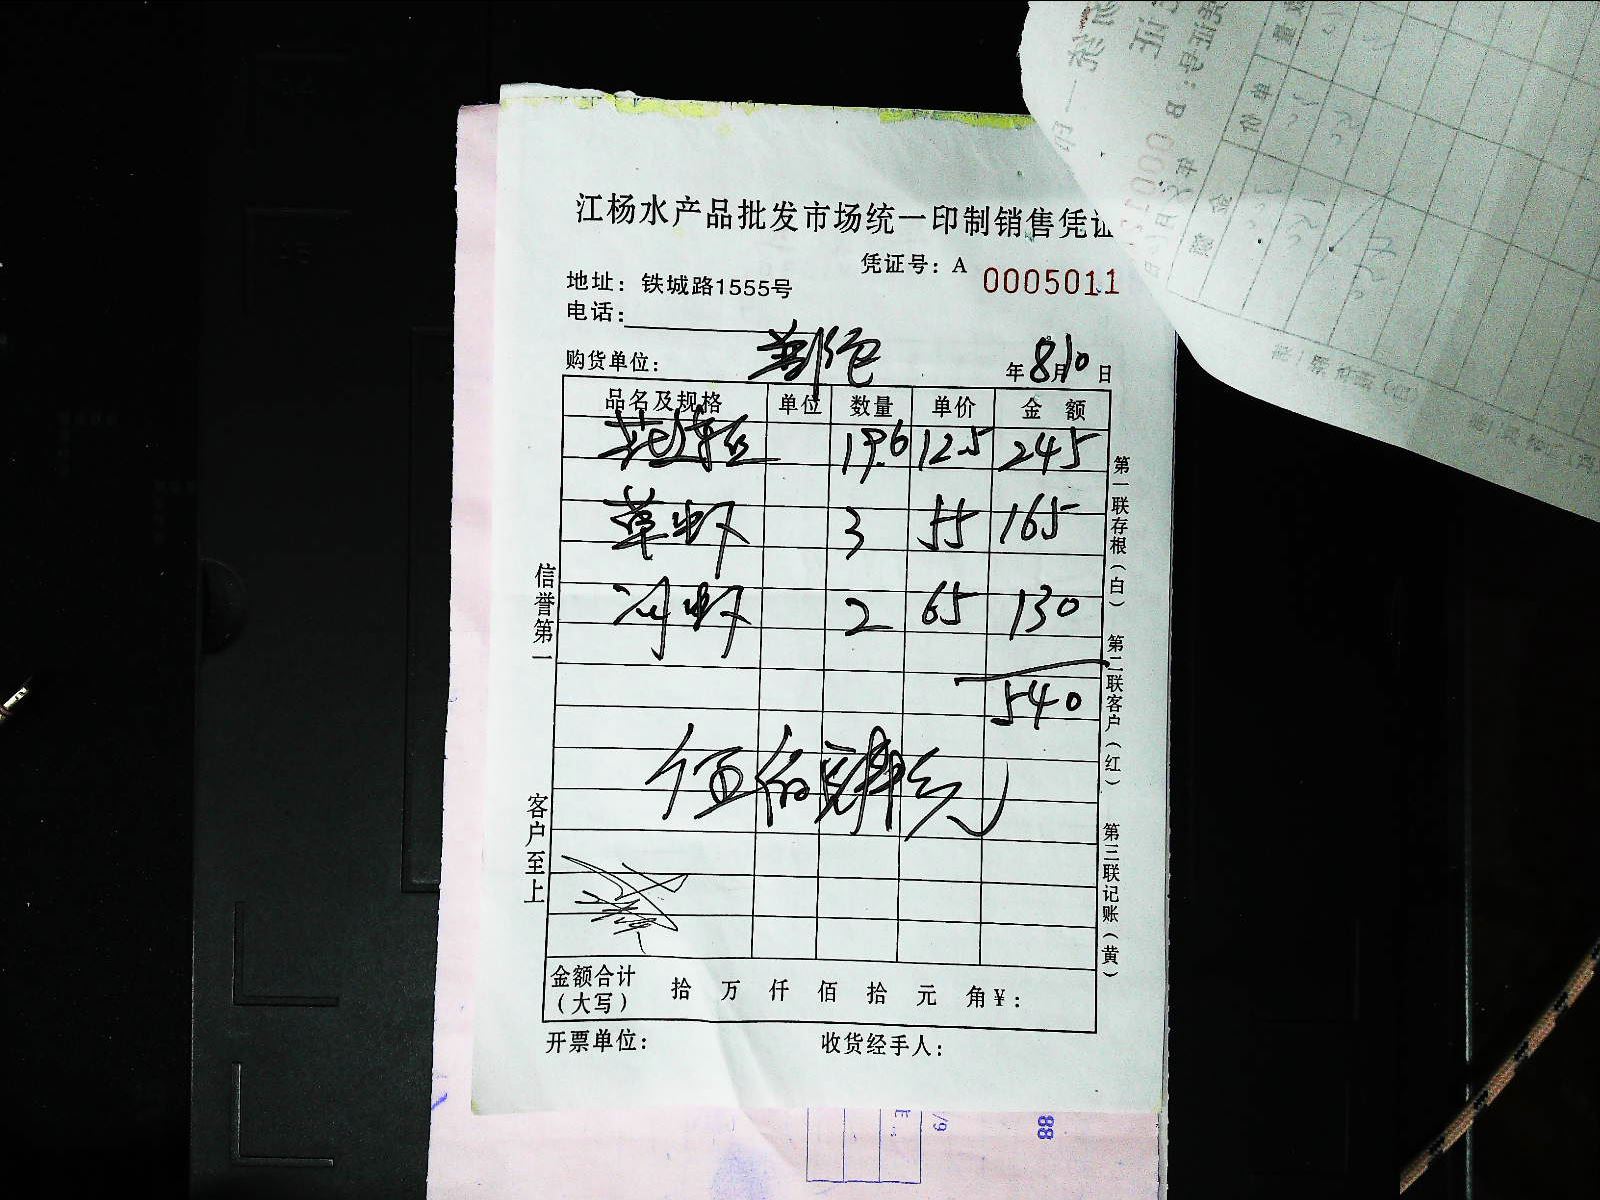 江杨水产品批发市场统一印制销售凭证
凭证号：A 0005011
地址：铁城路1555号
电话：
购货单位： 年8月10日
品名及规格 单位 数量 单价 金额
花 19.6 12.5 245
草虾 3 55 165
河虾 2 65 130
540
伍佰肆拾元
金额合计（大写） 拾 万 仟 佰 拾 元 角 ¥：
开票单位： 收货经手人：
信誉第一
客户至上
第一联存根（白）
第二联客户（红）
第三联记账（黄）
88